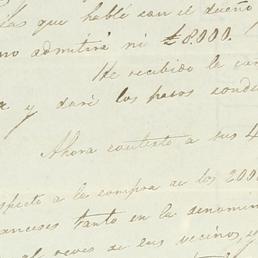 las que hablé con el dueño
no admitirá ni £8.000.
He recibido le
a y daré los pasos
Ahora contesto a sus 4
specto a la compra de los 200
anceses tanto en la denomin
al reves de los vecinos, y